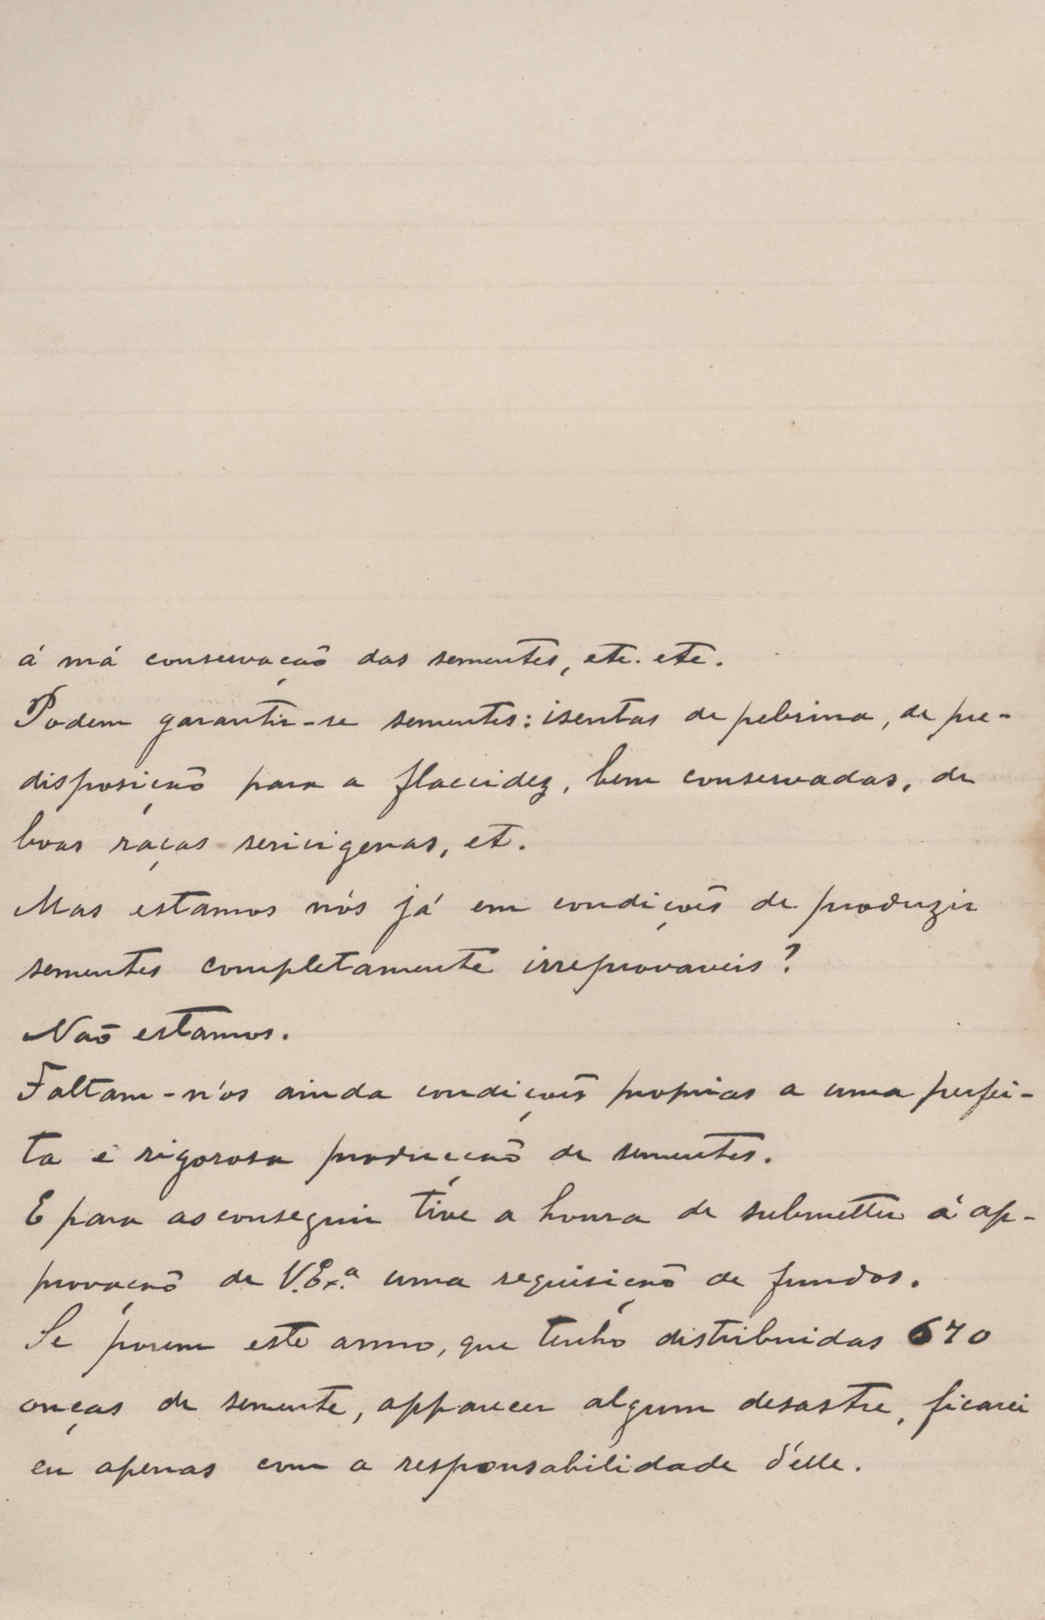 á má conservação das sementes, etc. etc.
Podem garantir-se sementes: isentas de pebrina, de pre-
disposição para a flaccidez, bem conservadas, de
boas raças sericigenas, et.
Mas estamos nós já em condições de produzir
sementes completamente irreprovaveis?
Não estamos.
Faltam-n'os ainda condições proprias a uma perfei-
ta e rigorosa producção de sementes.
E para as conseguir tive a honra de submetter á ap-
provação de V. Ex.ª uma requisição de fundos.
Se porem este anno, que tenho distribuidas 670
onças de semente, apparecer algum desastre, ficarei
eu apenas com a responsabilidade d'elle.